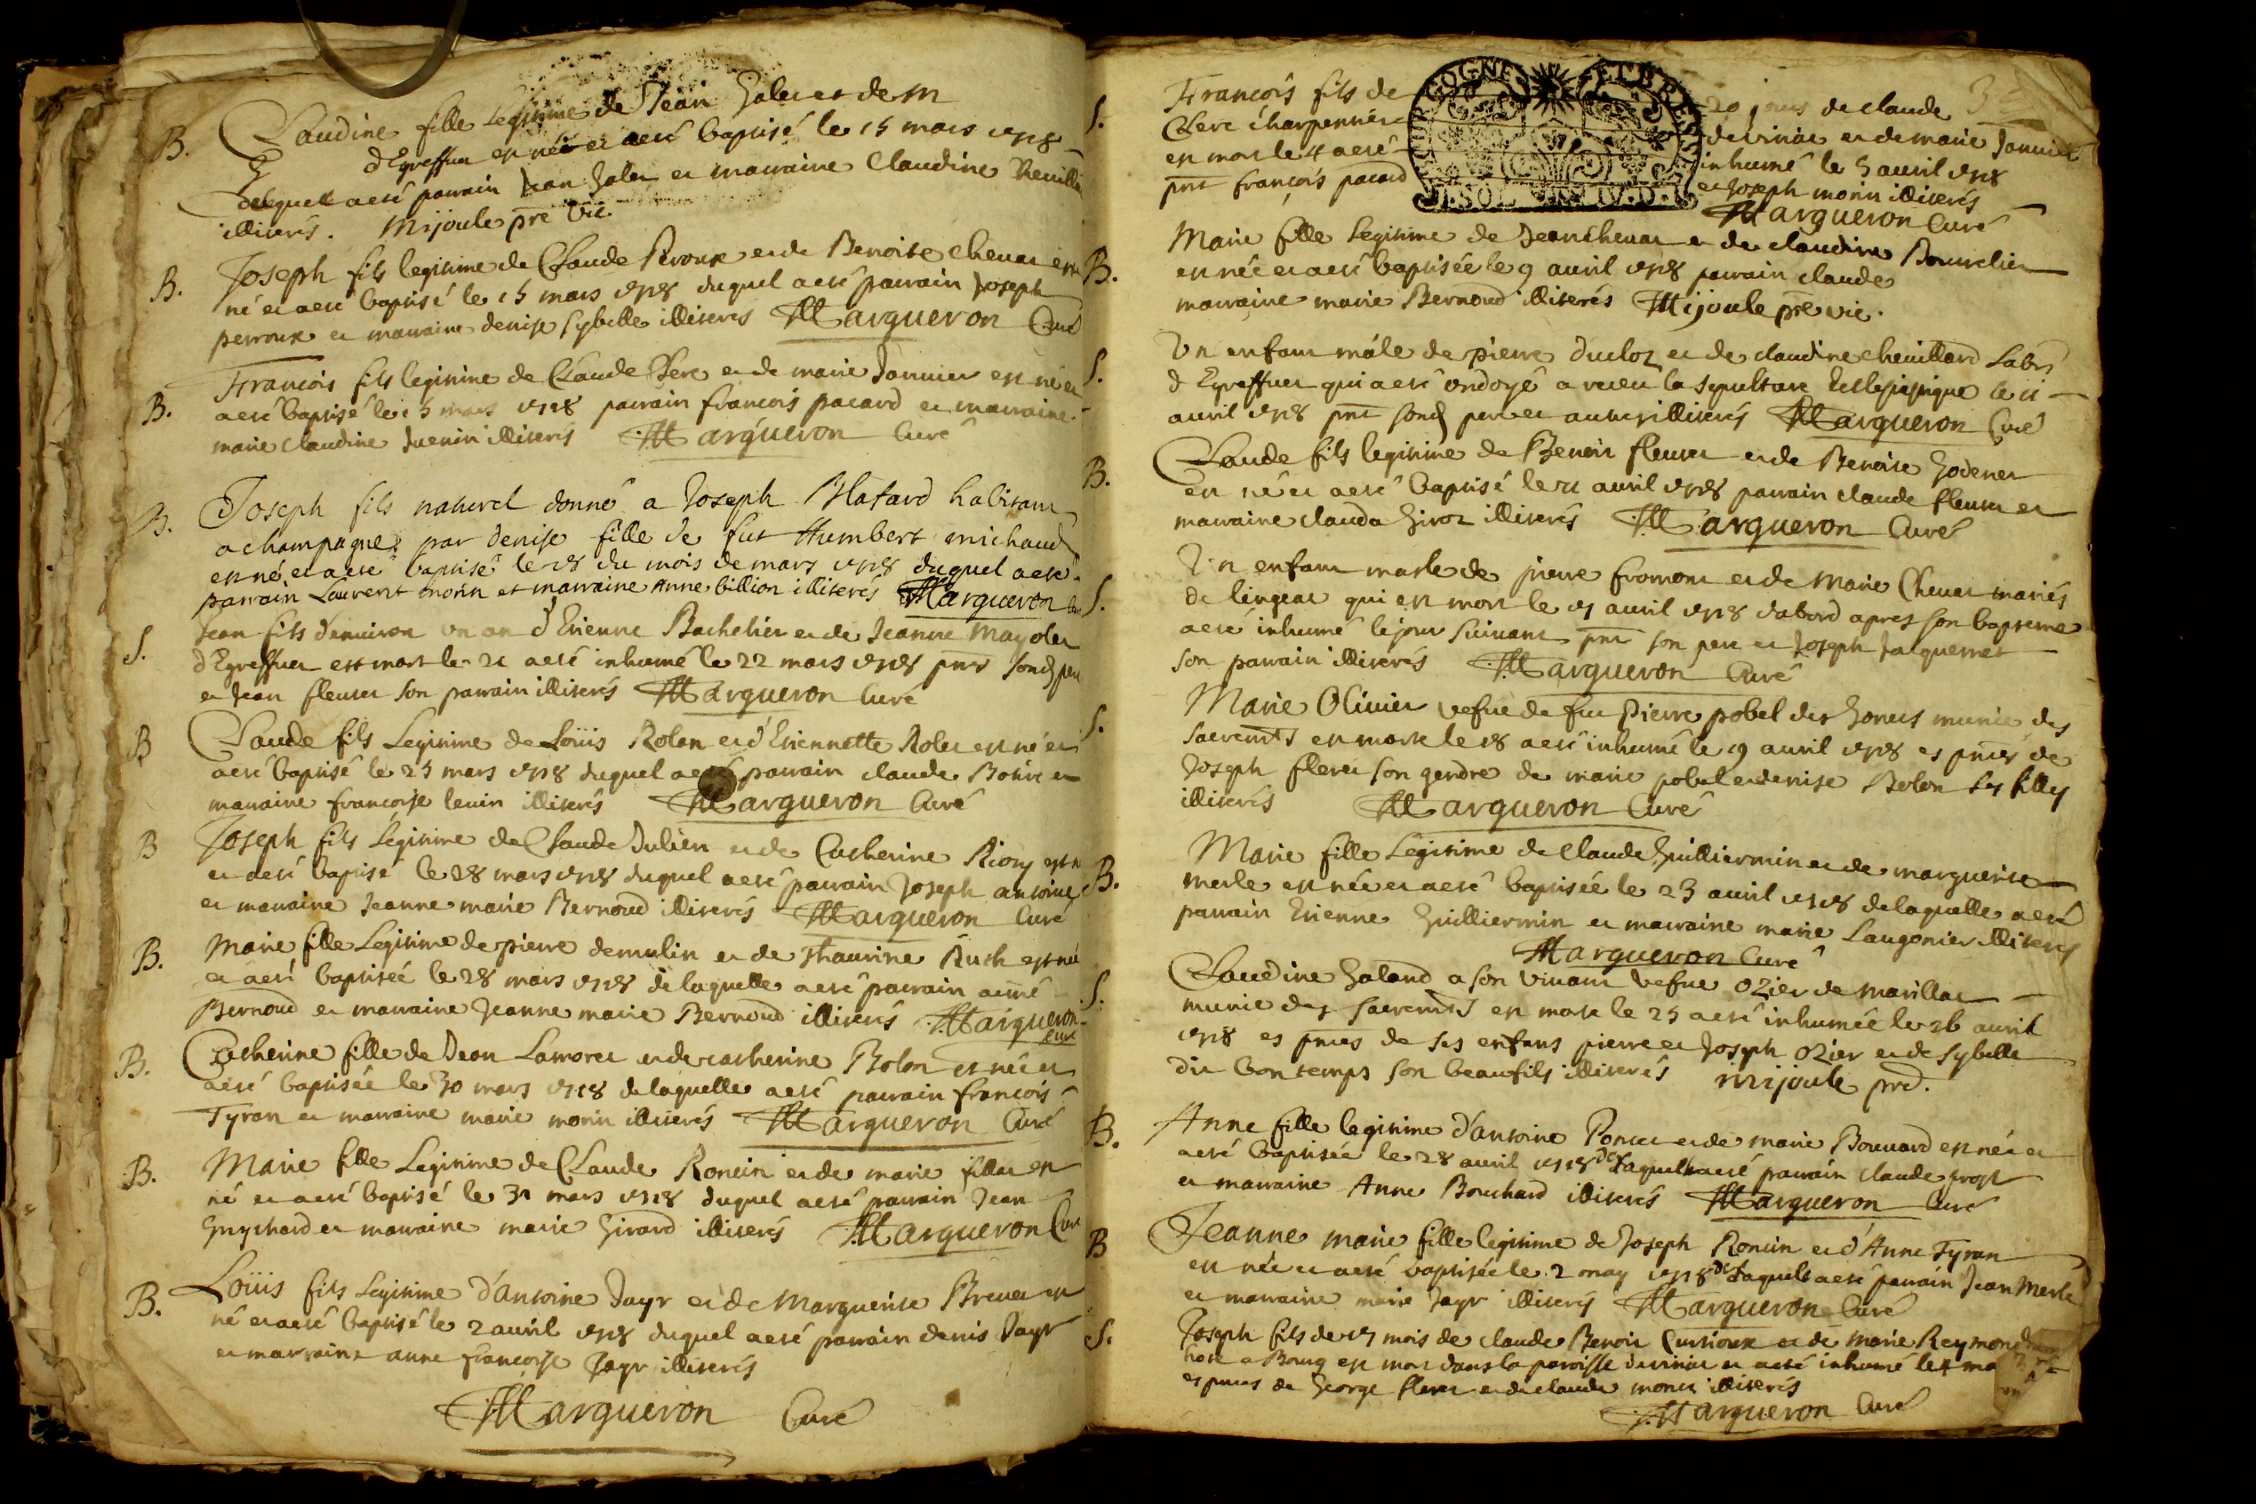 B. Claudine fille Legitime de Jean Galet et de M
d'Egreffur est née et a eté baptisé le 15 mars 1718
delaquelle a eté parrain Jean Galet et marraine Claudine
illiterés. Mijoule pre vic.
B. Joseph fils legitime de Claude Peroux et de Benoite Chevat est
né et a eté baptisé le 15 mars 1718 duquel a eté parrain Joseph
perroux et marraine denise sybelle illiterés Margueron Curé
B. Francois fils legitime de Claude Clerc et de marie Januier est né et
a eté baptisé le 15 mars 1718 parrain francois pacard et marraine
marie claudine Juenin illiterés Margueron Curé
B. Joseph fils naturel donné a Joseph Blatard habitant
a champagne par denise fille de fut Humbert michaud
est né et a eté baptisé le 18 du mois de mars 1718 duquel a eté
parrain Laurent morin et marraine Anne billion illiterés Margueron
S. Jean fils d'enuiron un an d'Etienne Bachelier et de Jeanne Mayolet
d'Egreffur est mort le 21 a eté inhumé le 22 mars 1718 pnts sond pere
et Jean fleuret son parrain illiterés Margueron Curé
B Claude fils Legitime de Loüis Rolan et d'Etiennette Rolet est né et
a eté baptisé le 25 mars 1718 duquel a eté parrain claude et
marraine francoise leuin illiterés Margueron Curé
B Joseph fils Légitime de Claude Julien et de Catherine Riony est né
et a eté baptisé le 28 mars 1718 duquel a eté parrain Joseph antoine
et marraine Jeanne marie Bernoud illiterés Margueron Curé
B. Marie fille Legitime de pierre demulin et de Thaurine Ruth est née
et a eté baptisée le 28 mars 1718 de laquelle a eté parrain aimé
Bernoud et marraine Jeanne marie Bernoud illiterés Margueron
Curé
B. Catherine fille de Jean Lamoret et de catherine Bolon est née et
a eté baptisée le 30 mars 1718 de laquelle a eté parrain francois
Tyran et marraine marie morin illiterés Margueron Curé
B. Marie fille Legitime de Claude Roncin et de marie fillat est
né et a eté baptisé le 31 mars 1718 duquel a eté parrain Jean
Guychard et marraine marie Girard illiterés Margueron Curé
B. Loüis fils Legitime d'antoine Jayr et de Marguerite Brevet est
né et a eté baptisé le 2 avril 1718 duquel a eté parrain denis Jayr
et marraine anne francoise Jayr illiterés
Margueron Curé
S. Francois fils de 20 jours de claude
Clerc charpentier deviriat et de marie Januier
est mort le 4 a eté inhumé le 5 auril 1718
pnt françois pacard et Joseph morin illiterés
Margueron Curé
B. Marie fille Legitime de Jean Chevat et de claudine Bourcelier
est née et a eté baptisée le 9 avril 1718 parrain claude
marraine marie Bernoud illiterés Mijoule pre vic.
S. Un enfant mâle de pierre ducloz et de claudine cheuillard Labr
d'Egreffur qui a eté ondoyé a receu la sepulture Ecclesiastique le 11
avril 1718 pnt sond pere et autres illiterés Margueron Curé
B. Claude fils legitime de Benoit fleuret et de Benoite Godenet
est né et a eté baptisé le 11 avril 1718 parrain claude fleuret et
marraine clauda Giroz illiterés Margueron Curé
S. Un enfant masle de pierre fromont et de Marie Chevat mariés
de lingeat qui est mort le 17 avril 1718 d'abord apres son bapteme
a eté inhumé le jour suivant pnt son pere et Joseph Jacquemet
son parrain illiterés Margueron Curé
S. Marie Olivier vefue de fut Pierre pobel des Gonets munie des
sacremts est morte le 18 a eté inhumé le 19 avril 1718 es pnces de
Joseph fleret son gendre de marie pobel et denise Bolon ses filles
illiterés Margueron Curé
B. Marie fille Legitime de Claude Guilliermin et de marguerite
merle est née et a eté baptisée le 23 avril 1718 de laquelle a eté
parrain Etienne Guilliermin et marraine marie Laugonier illiterés
Margueron Curé
S. Claudine Galand a son vivant vefue Ozier de Marillat
munie des sacremts est morte le 25 a eté inhumée le 26 avril
1718 es pnces de ses enfans pierre et Joseph Ozier et de sybelle
dit bontemps son beaufils illiterés Mijoule pre.
B. Anne fille legitime d'antoine Poncet et de marie Bouvard est née et
a eté baptisée le 28 avril 1718 de laquelle a eté parrain claude prost
et marraine Anne Bouchard illiterés Margueron Curé
B Jeanne marie fille legitime de Joseph Roncin et d'Anne Tyran
est née et a eté baptisée le 2 may 1718 de laquelle a eté parrain Jean Merle
et marraine marie Jayr illiterés Margueron Curé
S. Joseph fils de 17 mois de claude Benoit Curtioux et de Marie Reymond
hote a Bourg est mort dans la paroisse deviriat et a eté inhumé le 4
es pnces de George fleret et de claude monet illiterés
Margueron Curé